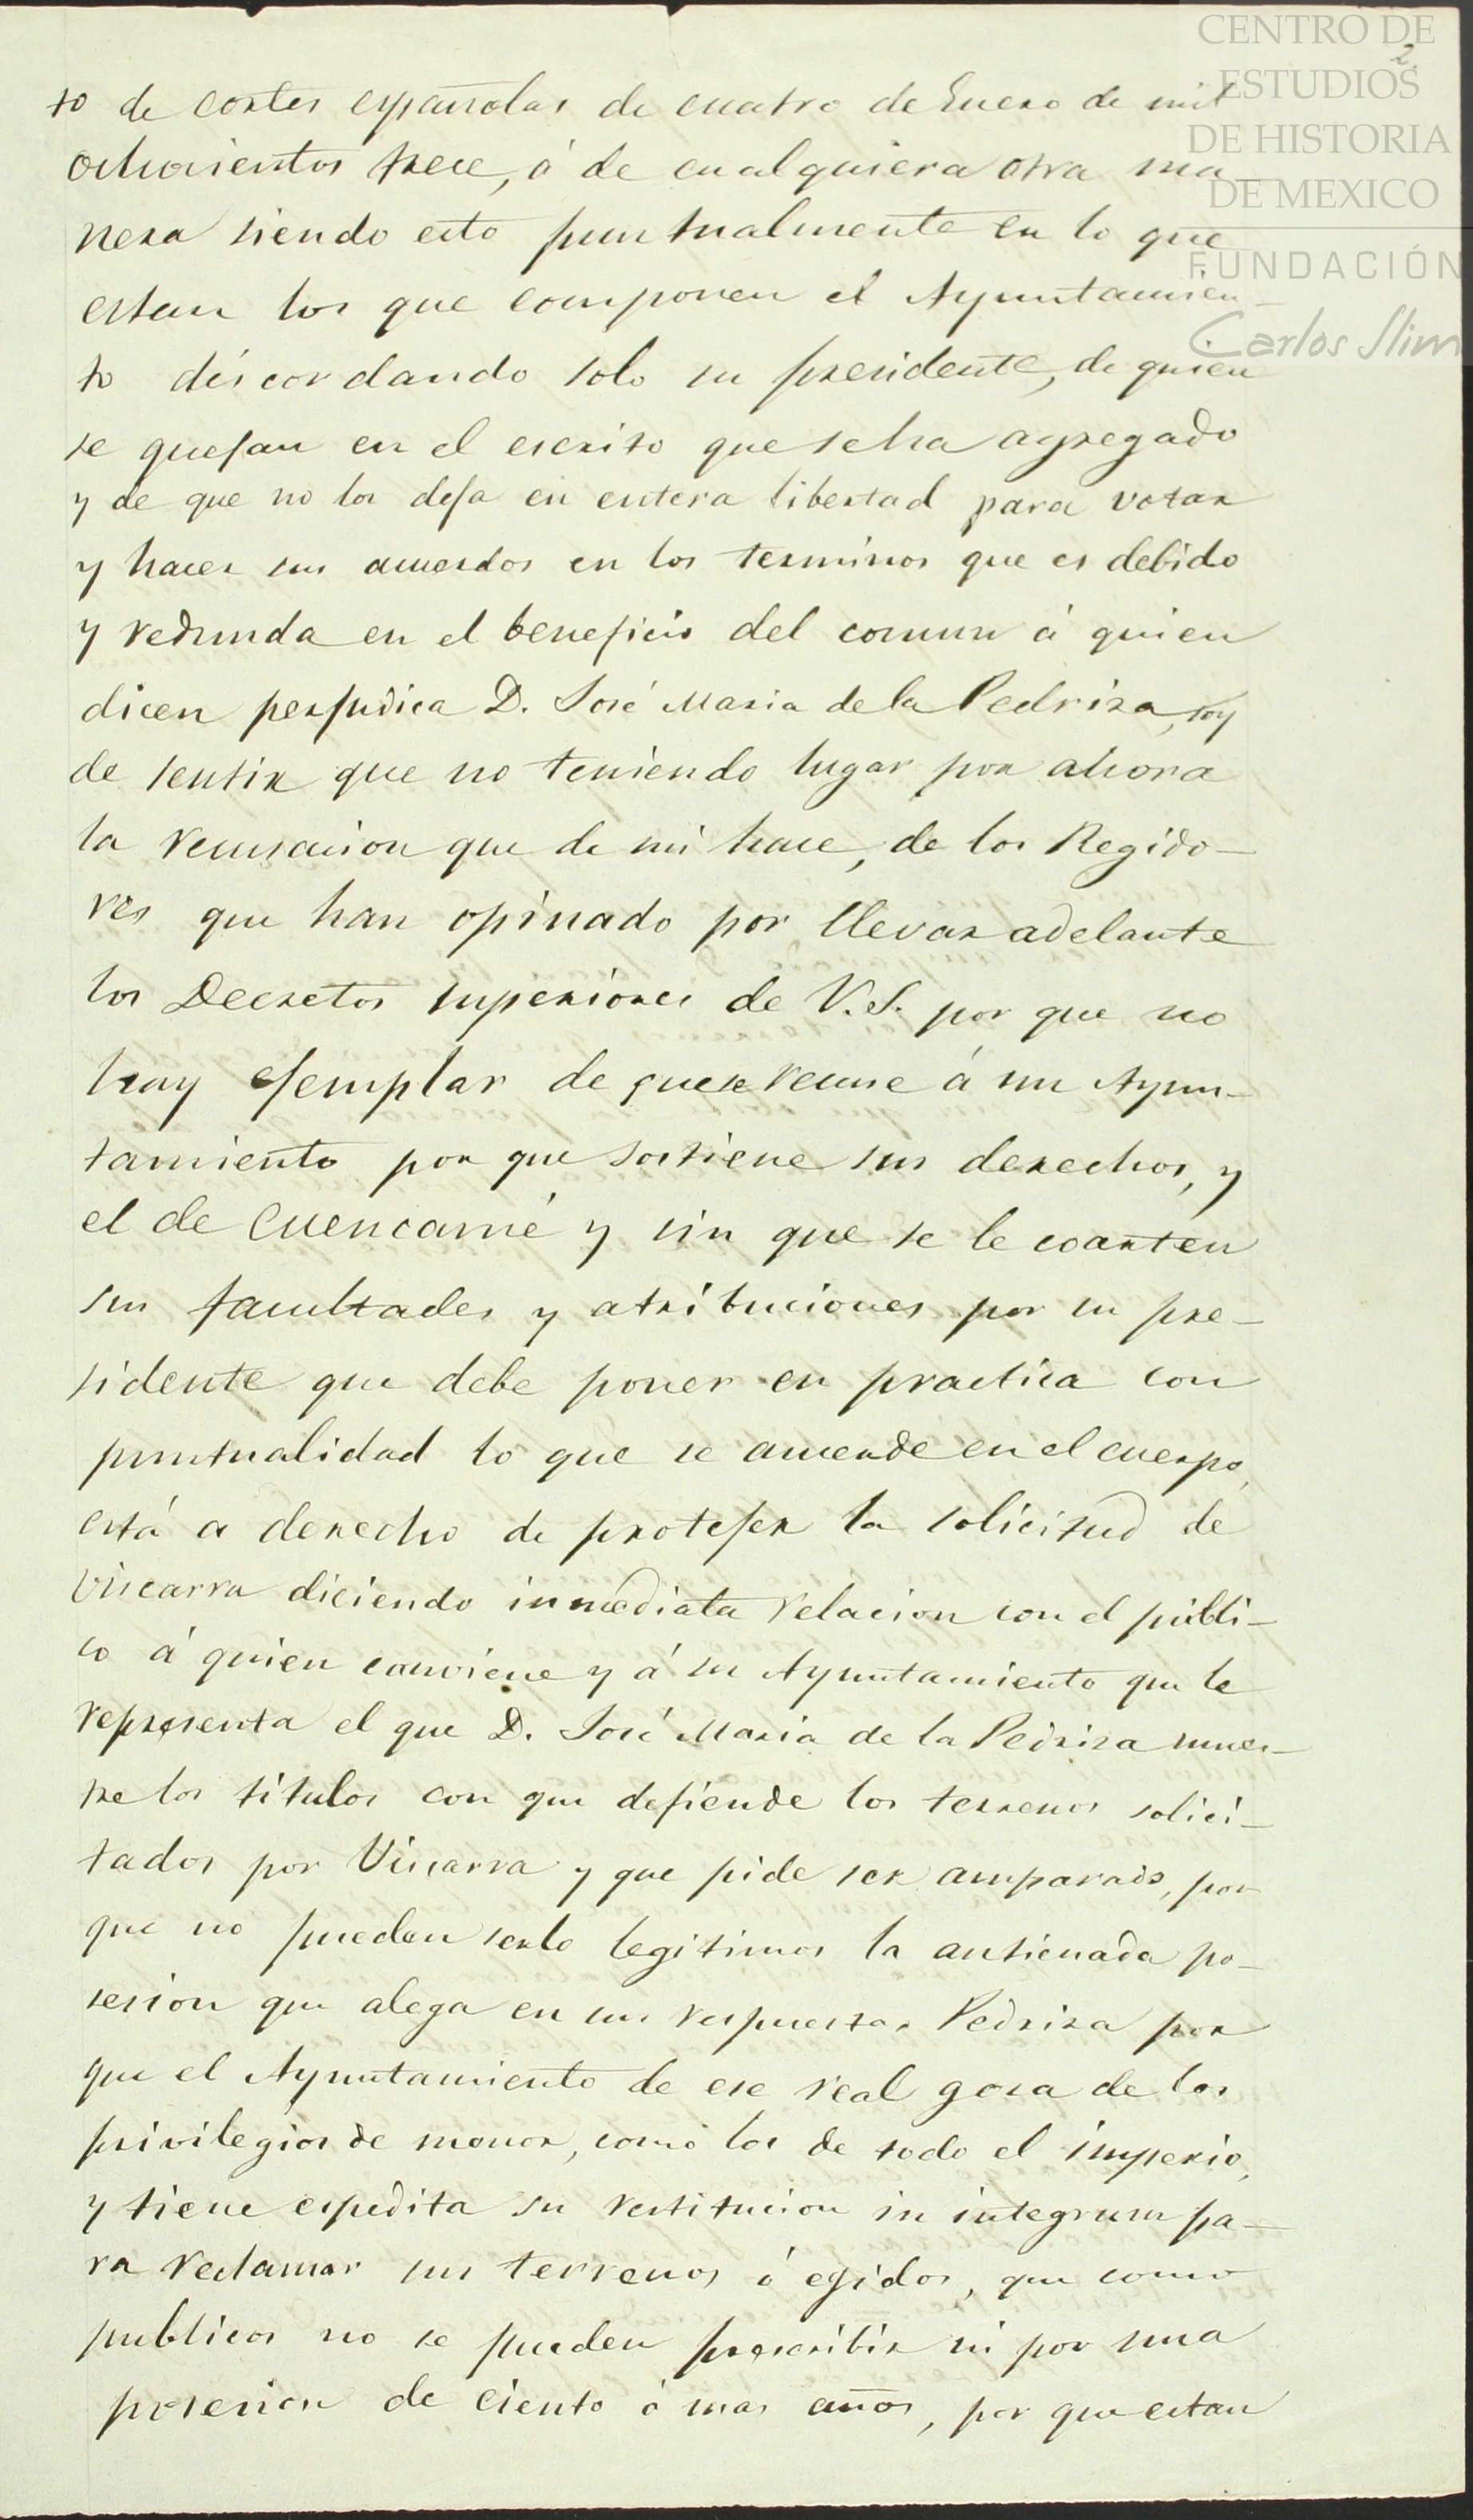 CENTRO DE
ESTUDIOS
DE HISTORIA
DE MEXICO
FUNDACIÓN
Carlos Slim
2
to de cortes españolas de cuatro de Enero de mil
ochocientos trece, ó de cualquiera otra ma
nera siendo esto puntualmente en lo que
estan los que componen el Ayuntamien-
to discordando solo su presidente, de quien
se quejan en el escrito que se ha agregado
y de que no los deja en entera libertad para votar
y hacer sus acuerdos en los terminos que es debido
y redunda en el beneficio del comun á quien
dicen perjudica D. José Maria de la Pedriza, soy
de sentir que no teniendo lugar por ahora
la recusacion que de mi hace, de los Regido-
res que han opinado por llevar adelante
los Decretos superiores de V.S. por que no
hay ejemplar de que se recuse á un Ayun-
tamiento por que sostiene sus derechos, y
el de Cuencamé y sin que se le coarten
sus facultades y atribuciones por su pre-
sidente que debe poner en practica con
puntualidad lo que se acuerde en el cuerpo,
está a derecho de protejer la solicitud de
Viscarra diciendo inmediata relacion con el públi-
co á quien conviene y á su Ayuntamiento que le
representa el que D. José Maria de la Pedriza mues-
tre los titulos con que defiende los terrenos solici-
tados por Viscarra y que pide ser amparado, por
que no pueden serlo legitimos la antienada po-
sesion que alega en sus respuestas Pedriza por
que el Ayuntamiento de ese real goza de los
privilegios de menor, como los de todo el imperio,
y tiene espedita su restitucion in integrum pa-
ra reclamar sus terrenos ó egidos, que como
publicos no se pueden prescribir ni por una
posesion de ciento ó mas años, por que estan